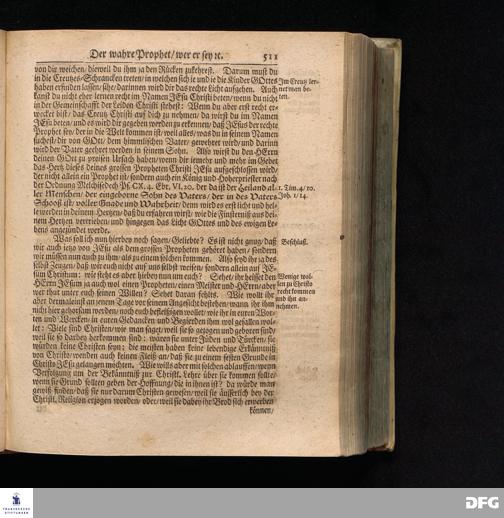 Der wahre Prophet/ wer er sey ꝛc. 511
von dir weichen/ dieweil du ihm ja den Rücken zukehrest. Darum must du
in die Creutzes-Schrancken treten/ in welchen sich je und je die Kinder GOttes
haben erfunden lassen/ sihe/ darinnen wird dir das rechte Licht aufgehen. Auch
kanst du nicht eher lernen recht im Namen JEsu Christi beten/ wenn du nicht
in der Gemeinschafft der Leiden Christi stehest: Wenn du aber erst recht er-
wecket bist/ das Creutz Christi auf dich zu nehmen/ da wirst du im Namen
JEsu beten/ und es wird dir gegeben werden zu erkennen/ daß JEsus der rechte
Prophet sey/ der in die Welt kommen ist/ weil alles/ was du in seinem Namen
suchest/ dir von GOtt/ dem himmlischen Vater/ gewehret wird/ und darinn
wird der Vater geehret werden in seinem Sohn. Also wirst du den HErrn
deinen GOtt zu preisen Ursach haben/ wenn dir jemehr und mehr im Gebet
das Hertz dieses deines grossen Propheten Christi JEsu aufgeschlossen wird/
der nicht allein ein Prophet ist/ sondern auch ein König und Hoherpriester nach
der Ordnung Melchisedech Ps. CX. 4. Ebr. VI. 20. der da ist der Heiland al-
ler Menschen/ der eingeborne Sohn des Vaters/ der in des Vaters
Schooß ist/ voller Gnade und Wahrheit/ denn wird es erst licht und hel-
le werden in deinem Hertzen/ daß du erfahren wirst/ wie die Finsterniß aus dei-
nem Hertzen vertrieben/ und hingegen das Licht GOttes und des ewigen Le-
bens angezündet werde.
Jm Creutz ler-
net man be-
ten.
1. Tim. 4/ 10.
Joh. 1/ 14.
Was soll ich nun hierbey noch sagen/ Geliebte? Es ist nicht genug/ daß
wir auch jetzo von JEsu als dem grossen Propheten gehöret haben/ sondern
wir müssen nun auch zu ihm/ als zu einem solchen kommen. Also seyd ihr ja des
selbst Zeugen/ daß wir euch nicht auf uns selbst weisen/ sondern allein auf JE-
sum Christum: wie steht es aber hiebey nun um euch? Sehet/ ihr heisset den
HErrn JEsum ja auch wol einen Propheten/ einen Meister und HErrn/ aber
wer thut unter euch seinen Willen? Sehet daran fehlts. Wie wollt ihr
aber dermaleinst an jenem Tage vor seinem Angesicht bestehen/ wann ihr ihm
nicht hier gehorsam werdet/ noch euch befleißiget wollet/ wie ihr in euren Wor-
ten und Wercken/ in euren Gedancken und Begierden ihm wol gefallen wol-
let: Viele sind Christen/ wie man saget/ weil sie so gezogen und geboren sind/
weil sie so darbey herkommen sind: wären sie unter Jüden und Türcken/ sie
würden keine Christen seyn: die meisten haben keine lebendige Erkänntniß
von Christo/ wenden auch keinen Fleiß an/ daß sie zu einem festen Grunde in
Christo JEsu gelangen möchten. Wie wills aber mit solchen ablauffen/ wenn
Verfolgung um der Bekänntniß zur Christl. Lehre über sie kommen solte/
wenn sie Grund sollten geben der Hoffnung/ die in ihnen ist? Da würde man
gewiß finden/ daß sie nur darum Christen gewesen/ weil sie äusserlich bey der
Christl. Religion erzogen worden/ oder/ weil sie dabey ihr Brod sich erwerben
können/
Beschluß.
Wenige wol-
len zu Christo
recht kommen
und ihn an-
nehmen.
FRANCKESCHE
STIFTUNGEN
DFG